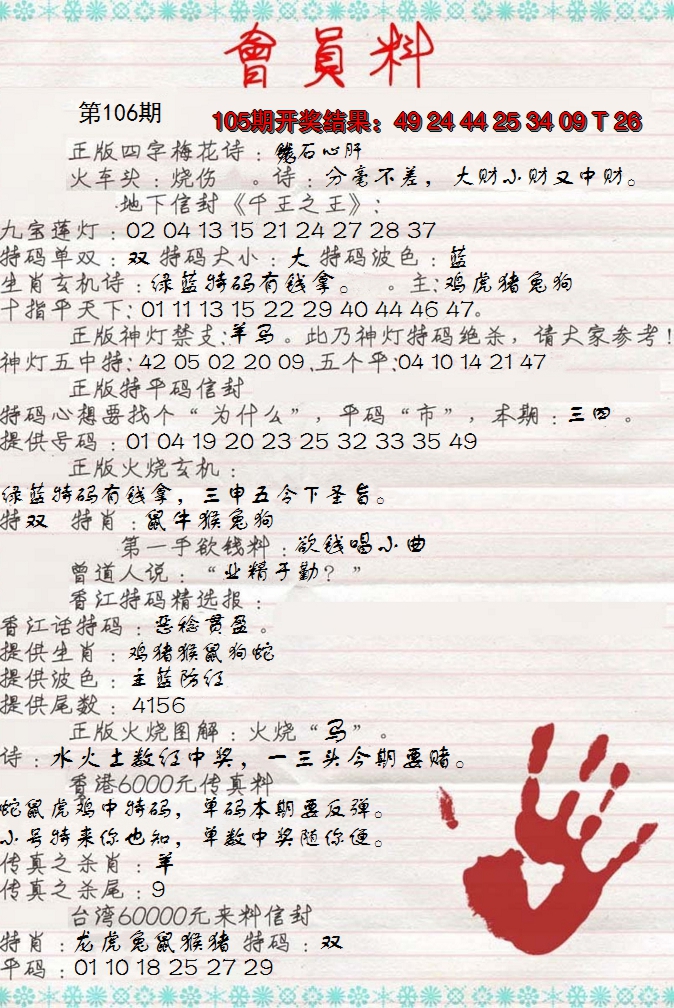 會員料
第106期
105期开奖结果：49 24 44 25 34 09 T 26
正版四字梅花诗：铁石心肝
火车头：烧伤　。诗：分毫不差，大财小财又中财。
地下信封《千王之王》：
九宝莲灯：02 04 13 15 21 24 27 28 37
特码单双：双 特码大小：大 特码波色：蓝
生肖玄机诗：绿蓝特码有钱拿。　。主：鸡虎猪兔狗
十指平天下：01 11 13 15 22 29 40 44 46 47。
正版神灯禁支：羊马。此乃神灯特码绝杀，请大家参考！
神灯五中特：42 05 02 20 09.五个平：04 10 14 21 47
正版特平码信封
特码心想要找个“为什么”，平码“市”，本期：三四。
提供号码：01 04 19 20 23 25 32 33 35 49
正版火烧玄机：
绿蓝特码有钱拿，三申五令下圣旨。
特双　特肖：鼠牛猴兔狗
第一手欲钱料：欲钱唱小曲
曾道人说：“业精于勤？”
香江特码精选报：
香江话特码：恶稔贯盈。
提供生肖：鸡猪猴鼠狗蛇
提供波色：主蓝防红
提供尾数：4156
正版火烧图解：火烧“马”。
诗：水火土数红中奖，一三头今期要赌。
香港6000元传真料
蛇鼠虎鸡中特码，单码本期要反弹。
小号特来你也知，单数中奖随你便。
传真之杀肖：羊
传真之杀尾：9
台湾60000元来料信封
特肖：龙虎兔鼠猴猪 特码：双
平码：01 10 18 25 27 29